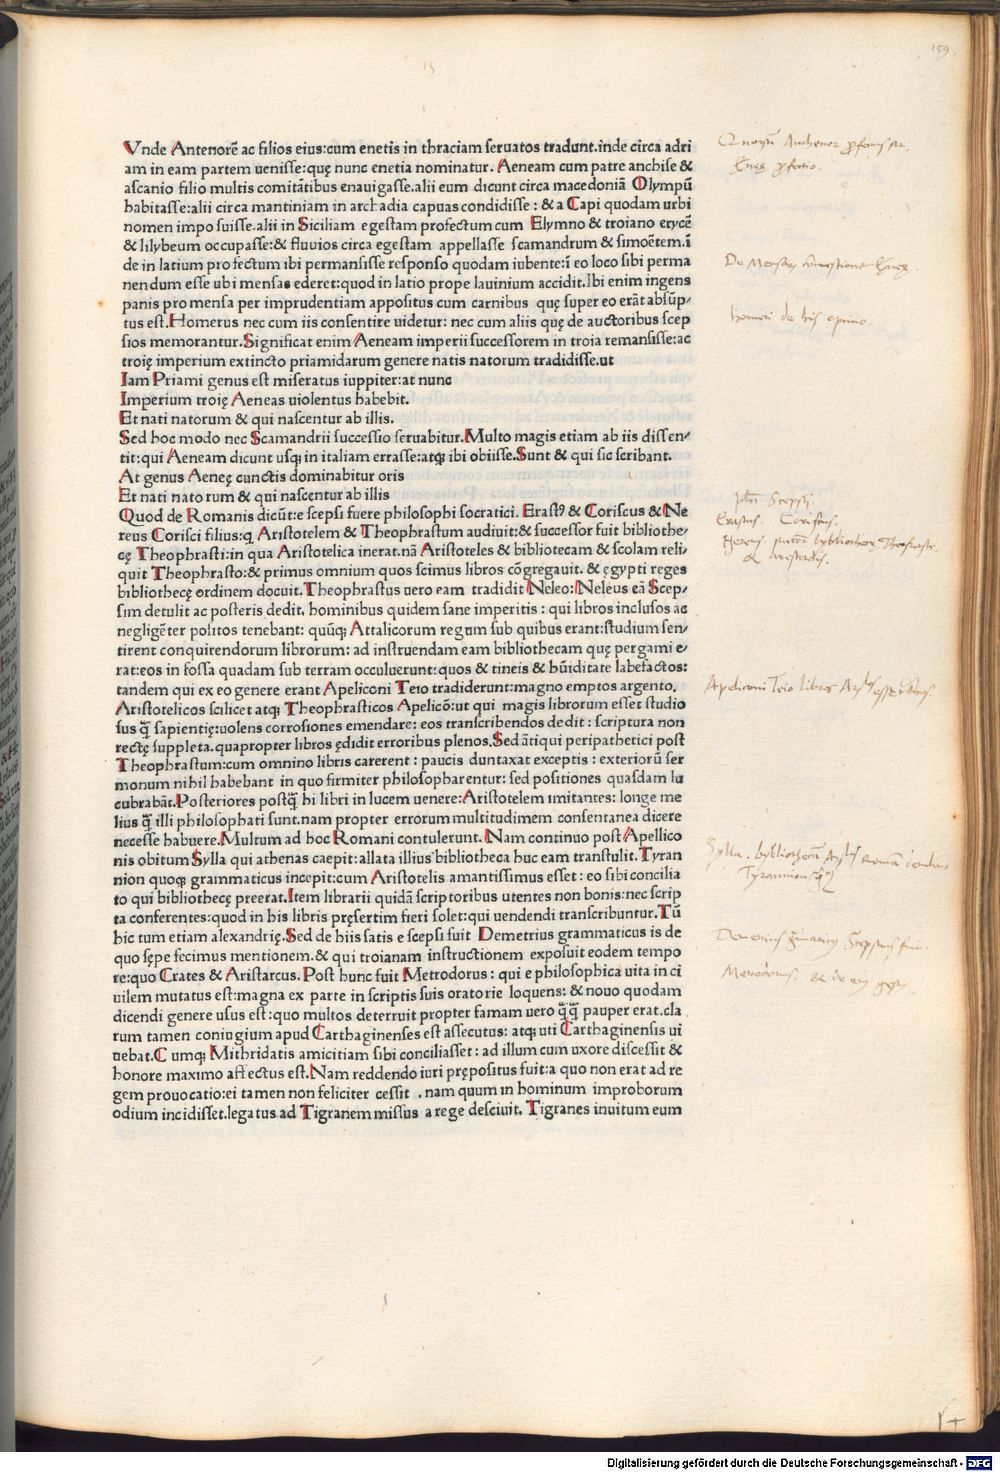 159.
Vnde Antenorē ac filios eius:cum enetis in thraciam seruatos tradunt.inde circa adri
am in eam partem uenisse:quę nunc enetia nominatur. Aeneam cum patre anchise &
ascanio filio multis comitātibus enauigasse.alii eum dicunt circa macedoniā Olympū
habitasse:alii circa mantiniam in archadia capuas condidisse : & a Capi quodam urbi
nomen impo suisse.alii in Siciliam egestam profectum cum Elymno & troiano erycē
& lilybeum occupasse:& fluuios circa egestam appellasse scamandrum & simoētem.ī
de in latium pro fectum ibi permansisse responso quodam iubente:ī eo loco sibi perma
nendum esse ubi mensas ederet:quod in latio prope lauinium accidit.Ibi enim ingens
panis pro mensa per imprudentiam appositus cum carnibus quę super eo erāt absūp-
tus est.Homerus nec cum iis consentire uidetur: nec cum aliis quę de auctoribus scep
sios memorantur.Significat enim Aeneam imperii successorem in troia remansisse:ac
troię imperium extincto priamidarum genere natis natorum tradidisse.ut
Iam Priami genus est miseratus iuppiter:at nunc
Imperium troię Aeneas uiolentus habebit.
Et nati natorum & qui nascentur ab illis.
Sed hoc modo nec Scamandrii successio seruabitur.Multo magis etiam ab iis dissen-
tit:qui Aeneam dicunt usqꝫ in italiam errasse:atqꝫ ibi obiisse.Sunt & qui sic scribant.
At genus Aeneę cunctis dominabitur oris
Et nati nato rum & qui nascentur ab illis
Quod de Romanis dicūt:e scepsi fuere philosophi socratici. Erastꝰ & Coriscus & Ne
reus Corisci filius:q Aristotelem & Theophrastum audiuit:& successor fuit bibliothe-
cę Theophrasti:in qua Aristotelica inerat.nā Aristoteles & bibliotecam & scolam reli-
quit Theophrasto:& primus omnium quos scimus libros cōgregauit. & ęgypti reges
bibliothecę ordinem docuit.Theophrastus uero eam tradidit Neleo:Neleus eā Scep-
sim detulit ac posteris dedit, hominibus quidem sane imperitis : qui libros inclusos ac
negligēter positos tenebant: quūqꝫ Attalicorum regum sub quibus erant:studium sen-
tirent conquirendorum librorum: ad instruendam eam bibliothecam quę pergami e-
rat:eos in fossa quadam sub terram occuluerunt:quos & tineis & hūiditate labefactos:
tandem qui ex eo genere erant Apeliconi Teio tradiderunt:magno emptos argento.
Aristotelicos scilicet atqꝫ Theophrasticos Apelicō:ut qui magis librorum esset studio
sus q̄ sapientię:uolens corrosiones emendare: eos transcribendos dedit : scriptura non
rectę suppleta.quapropter libros ędidit erroribus plenos.Sed ātiqui peripathetici post
Theophrastum:cum omnino libris carerent : paucis duntaxat exceptis : exteriorū ser
monum nihil habebant in quo firmiter philosopharentur: sed positiones quasdam lu
cubrabāt.Posteriores postq̄ hi libri in lucem uenere:Aristotelem imitantes: longe me
lius q̄ illi philosophati sunt.nam propter errorum multitudimem consentanea dicere
necesse habuere.Multum ad hoc Romani contulerunt. Nam continuo post Apellico
nis obitum Sylla qui athenas caepit:allata illius bibliotheca huc eam transtulit. Tyran
nion quoqꝫ grammaticus incepit:cum Aristotelis amantissimus esset : eo sibi concilia
to qui bibliothecę preerat.Item librarii quidā scriptoribus utentes non bonis:nec scrip
ta conferentes:quod in his libris pręsertim fieri solet:qui uendendi transcribuntur.Tū
hic tum etiam alexandrię.Sed de hiis satis e scepsi fuit Demetrius grammaticus is de
quo sępe fecimus mentionem.& qui troianam instructionem exposuit eodem tempo
re:quo Crates & Aristarcus. Post hunc fuit Metrodorus : qui e philosophica uita in ci
uilem mutatus est:magna ex parte in scriptis suis oratorie loquens: & nouo quodam
dicendi genere usus est:quo multos deterruit propter famam uero q̄q̄ pauper erat.cla
rum tamen coniugium apud Carthaginenses est assecutus: atqꝫ uti Carthaginensis ui
uebat.Cumqꝫ Mithridatis amicitiam sibi conciliasset : ad illum cum uxore discessit &
honore maximo affectus est.Nam reddendo iuri prępositus fuit:a quo non erat ad re
gem prouocatio:ei tamen non feliciter cessit . nam quum in hominum improborum
odium incidisset.legatus ad Tigranem missus a rege desciuit. Tigranes inuitum eum
Homeri de his opinio.
Erastus. Coriscus.
Apeliconi Teio libros
Sylla.
Tyrannion
Demetrius
Metrodorus. & de
Digitalisierung gefördert durch die Deutsche Forschungsgemeinschaft - DFG